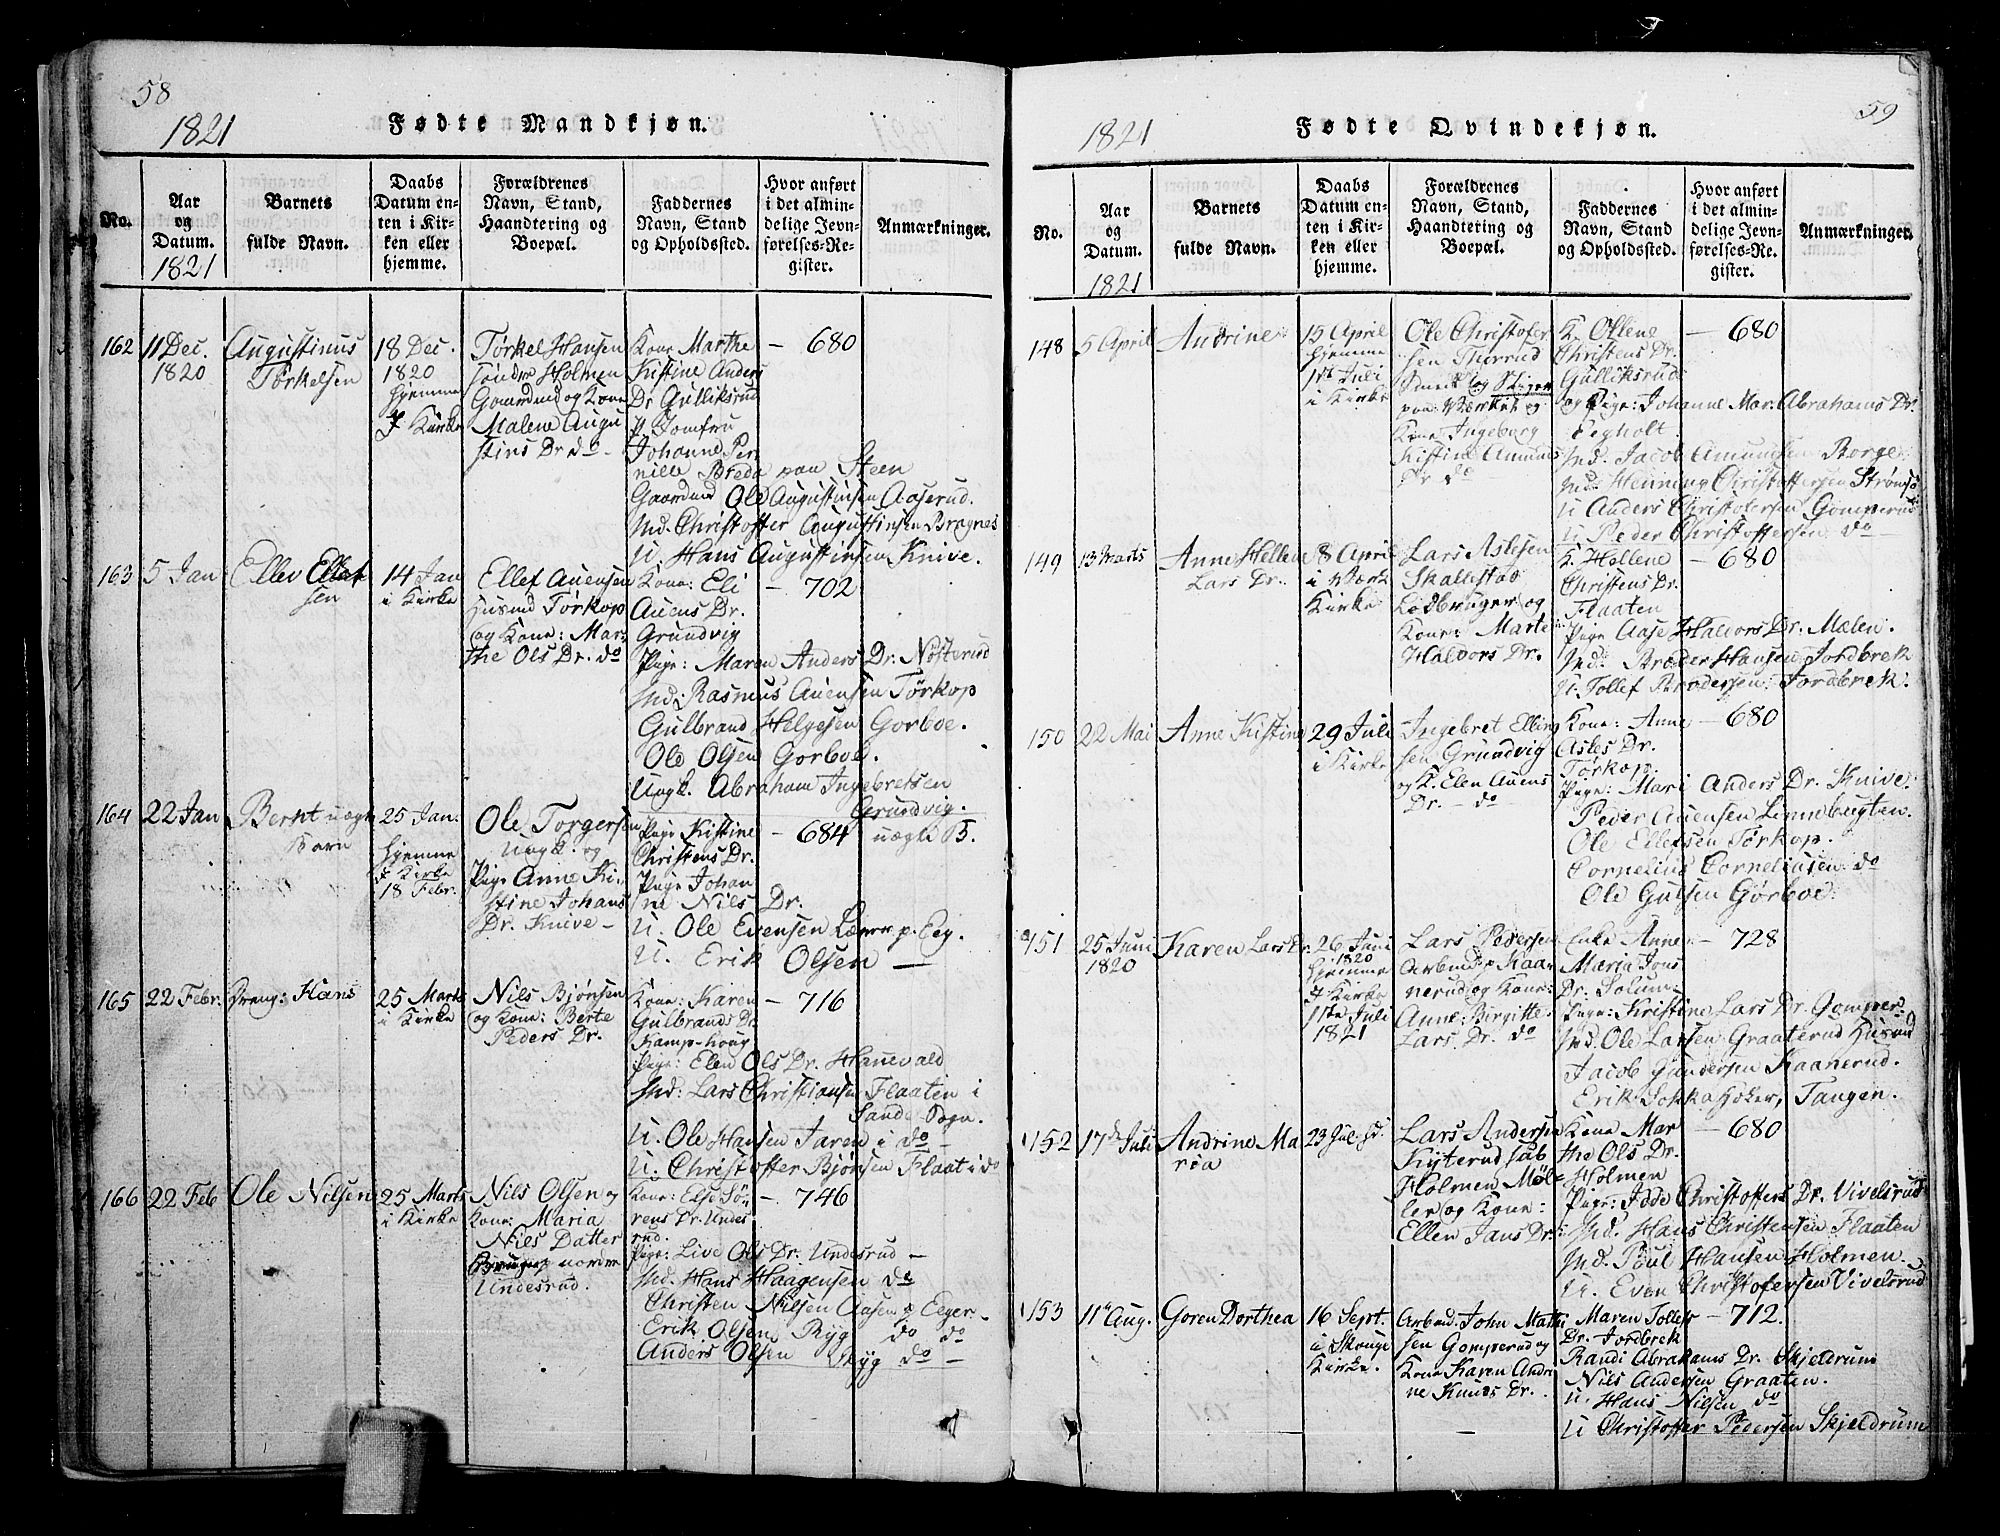 58
1821
Fødte Mandkjøn.
No.
Aar
og
Datum.
1821
Barnets
fulde Navn.
Daabs
Datum en-
ten i Kir-
ken eller
hjemme.
Forældrenes
Navn, Stand,
Haandtering og
Boepæl.
Faddernes
Navn, Stand
og Opholdssted.
Hvor anført
i det almin-
delige Jevn-
førelses-Re-
gister.
Anmærkninger.
162
11 Dec.
1820
Augustinus
Tørkelsen
18 Dec.
1820
hjemme
J Kirke
Tørkel Hansen
søndre Holmen
Gaardmd og Kone
Malene Augu
stins Dr do
Kone Marthe
Kistine Anders
Dr Gulliksrud
p. Jomfru
Johanne Per
nille Breda paa Steen
Gaardmd Ole Augustinsen Aaserud.
Md. Christoffer Augustinsen Bragnes
U. Hans Augustinsen Knive.
680
163
5 Jan
Ellev Ellef
sen
14 Jan
i Kirke
Ellef Auensen
Husmd Tørkop
og Kone: Mar-
the Ols Dr. do
Kone: Eli
Auens Dr.
Grundvig
Pige: Maren Anders Dr. Nøsterud
Md: Rasmus Auensen Tørkop
Gulbrand Helgesen Gorboe.
Ole Olsen Gorboe.
Ungk. Abraham Ingebretsen
Grundvig.
702
164
22 Jan
Bernt uægte
Barn
25 Jan.
hjemme
J Kirke
18 Febr.
Ole Torgersen
Ungk. og
Pige Anne Ki-
stine Johans
Dr. Knive
Pige Kistine
Christens Dr.
Pige Johan
ne Nils Dr.
U. Ole Evensen p. Eeg.
U. Erik Olsen
684
uægte B.
165
22 Febr.
Dreng: Hans
25 Marts
i Kirke
Nils Bjørnsen
og Kone: Berte
Peders Dr.
Kone: Karen
Gulbrands Dr
Kamp-houg
Pige: Ellen Ols Dr. Hanevald
Md: Lars Christiansen Flaaten i
Sande Sogn.
U. Ole Hansen Jaren i do
U. Christoffer Bjørnsen Flaat i do
716
166
22 Feb
Ole Nilsen
25 Marts
i Kirke
Nils Olsen og
Kone: Maria
Nils Datter
Bruger nordre
Undesrud.
Kone: Else Sø-
rens Dr. Undes
rud.
Pige: Live Ols Dr. Undesrud
Md. Hans Haagensen do
Christen Nilsen Aasen p Eeger
Erik Olsen Ryg do do
Anders Olsen Ryg do
746
59
1821
Fødte Qvindekjøn.
No.
Aar
og
Datum.
1821
Barnets
fulde Navn.
Daabs
Datum en-
ten i Kir-
ken eller
hjemme.
Forældrenes
Navn, Stand,
Haandtering og
Boepæl.
Faddernes
Navn, Stand
og Opholdssted.
Hvor anført
i det almin-
delige Jevn-
førelses-Re-
gister.
Anmærkninger.
148
5 April
Andrine
15 April
hjemme
1st Juli
i Kirke
Ole Christofer
sen
Smed og Stiger
paa Værket og
Kone Ingeborg
Kistine Amunds
Dr do
K. Ollene
Christens Dr.
Gulliksrud
og Pige: Johanne Mar. Abrahams Dr.
Eegholt.
Md. Jacob Amundsen Borge
Md. Henning Christoffersen Strømsø
U Anders Christofersen Gomperud
U. Peder Christoffersen do
680
149
13 Marts
Anne Hellene
Lars Dr.
8 April
i Værk
Kirke
Lars Aslesen
Skallestad
Lodbruger og
Kone: Marte
Halvors Dr.
K. Hellene
Christens Dr.
Flaaten
Pige Aase Halvors Dr. Mælen.
Md. Breder Hansen Jordbrek
U. Tollef Brodersen Jordbrek.
680
150
22 Mai
Anne Kistine
29 Juli
i Kirke
Ingebret Elling
sen Grundvig
og K. Elen Auens
Dr. do
Kone: Anne
Asles Dr.
Tørkop.
Pige: Mari Anders Dr. Knive.
Peder Auensen Linnebugten.
Ole Ellefsen Tørkop.
Cornelius Corneliusen do
Ole Gulsen Gørboe.
680
151
25 Juni
1820
Karen Lars Dr.
26 Juni
1820
hjemme
J Kirke
1ste Juli
1821
Lars Pedersen
Arbmd p Kaa-
nerud og Kone:
Anne Birgitte
Lars Dr. do
Enke Anne
Maria Jons
Dr. Solum
Pige: Kristine Lars Dr. Gomper-
Md. Ole Larsen Graaterud Husmd
Jacob Gundersen Kaanerud.
Erik Sokka Høker, Tangen.
728
152
17de Juli
Andrine Ma
ria
23 Jul. Hd.
Lars Andersen
Kyterud
Holmen Møl-
ler og Kone:
Ellen Jans Dr.
Kone Mar
the Ols Dr.
Holmen
Pige: Idde Christoffers Dr. Vivelsrud
Md. Hans Christensen Flaaten
Md. Poul Hansen Holmen.
U. Even Christofersen Vivelsrud
680
153
11te Aug.
Goren Dorthea
16 Sept.
i Skouge
Kirke.
Arbmd. John Mathi
sen Gomperud og
Kone Karen Andri
ne Knuds Dr.
Maren Tollefs
Dr. Jordbrek
Randi Abrahams Dr. Skjeldrum
Nils Andersen Graaten.
U. Hans Nilsen do
U Christoffer Pedersen Skjeldrum
712.